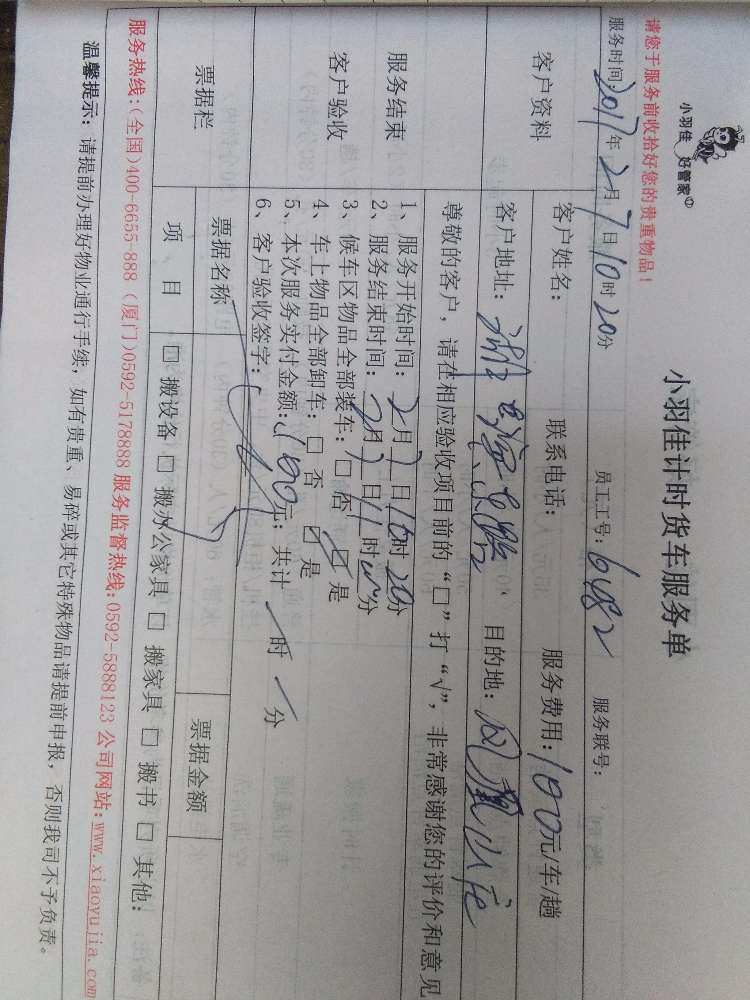 小羽佳 好管家
小羽佳计时货车服务单
请您于服务前收拾好您的贵重物品！
服务时间：2017年2月7日10时20分 员工工号：6482 服务联号：
客户资料
客户姓名： 联系电话： 服务费用：100元/车/趟
客户地址： 目的地：凤凰山庄
尊敬的客户，请在相应验收项目前的“□”打“√”，非常感谢您的评价和意见
服务结束
客户验收
1、服务开始时间：2月7日10时20分
2、服务结束时间：2月7日11时分
3、候车区物品全部装车：□否 ☑是
4、车上物品全部卸车：□否 ☑是
5、本次服务实付金额：100元；共计/时/分
6、客户验收签字：
票据栏
票据名称 票据金额
项 目 □搬设备 □搬办公家具 □搬家具 □搬书 □其他：
服务热线：(全国)400-6655 888 (厦门)0592-5178888 服务监督热线：0592-5888123 公司网站：www.xiaoyujia.com
温馨提示：请提前办理好物业通行手续，如有贵重、易碎或其它特殊物品请提前申报，否则我司不予负责。